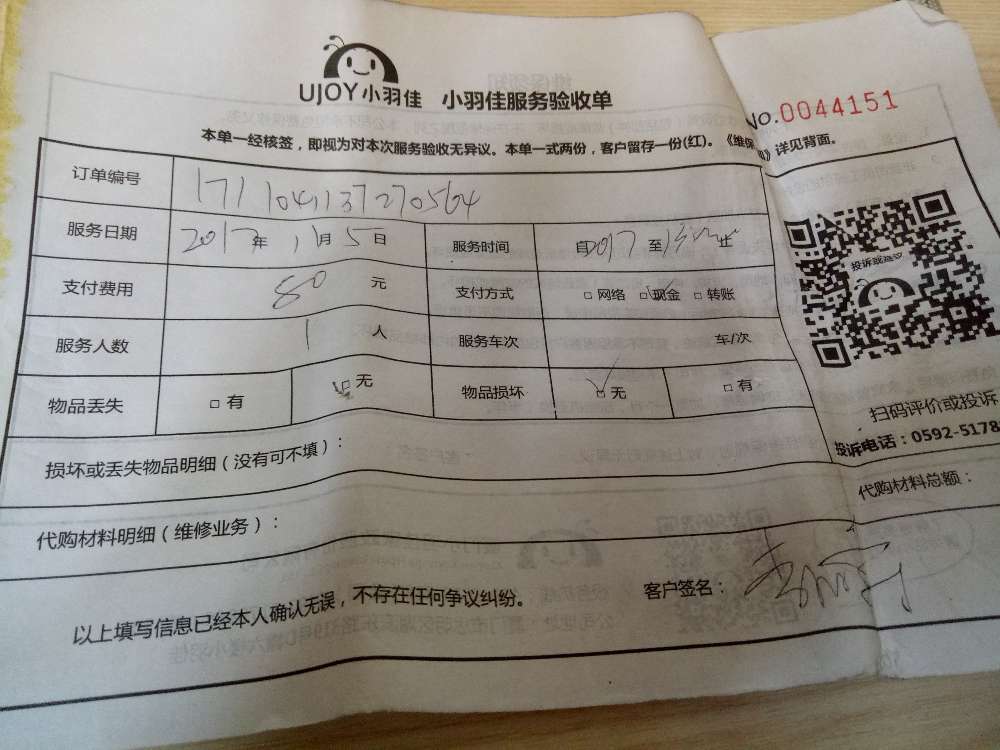 UJOY小羽佳 小羽佳服务验收单
NO.0044151
本单一经核签，即视为对本次服务验收无异议。本单一式两份，客户留存一份(红)。《维保 》详见背面。
订单编号 171104113727 0564
服务日期 2017年 11月 5日 服务时间 自 至 止
支付费用 80 元 支付方式 □ 网络 □ 现金 □ 转账
服务人数 1 人 服务车次 车/次
物品丢失 □ 有 □ 无 物品损坏 □ 无 □ 有
投诉或
扫码评价或投诉
投诉电话：0592-5178
损坏或丢失物品明细（没有可不填）：
代购材料明细（维修业务）： 代购材料总额：
以上填写信息已经本人确认无误，不存在任何争议纠纷。 客户签名：